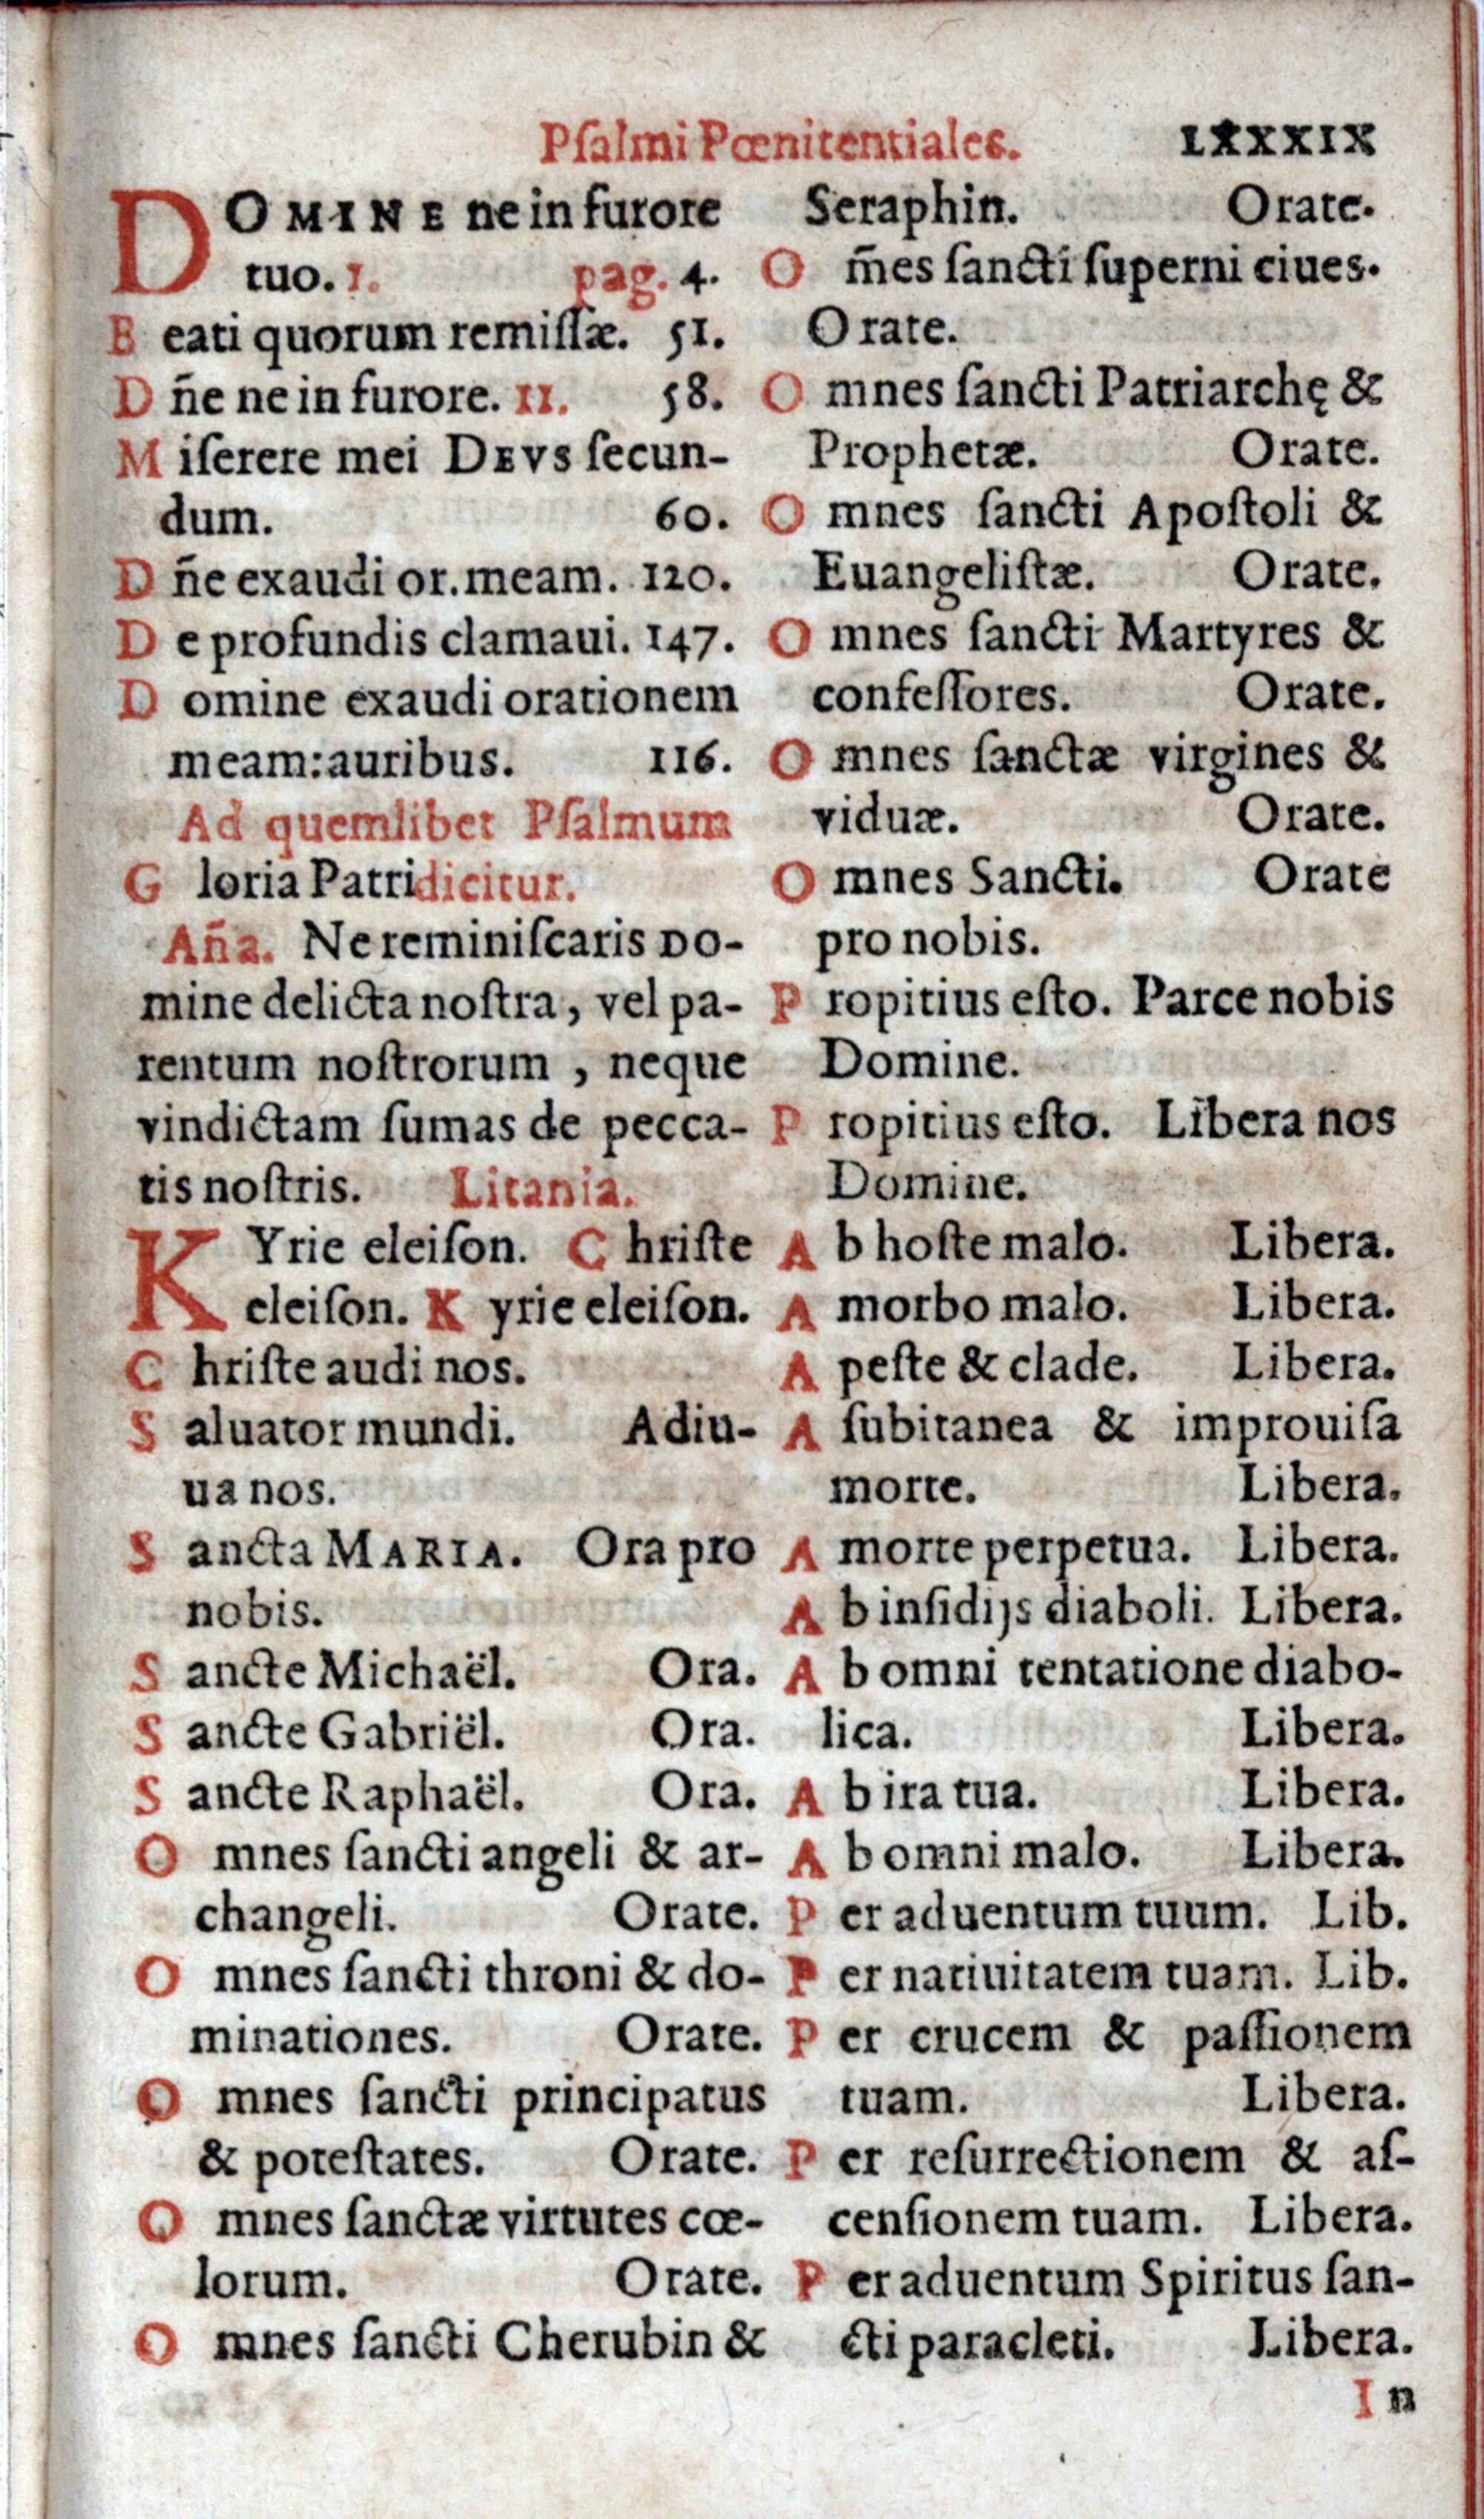 Pſalmi Pœnitentiales. LXXXIX
DOMINE ne in furore
tuo. I. pag. 4.
Beati quorum remiſſæ. 51.
Dñe ne in furore. II. 58.
Miſerere mei DEVS ſecun-
dum. 60.
Dñe exaudi or. meam. 120.
De profundis clamaui. 147.
Domine exaudi orationem
meam: auribus. 116.
Ad quemlibet Pſalmum
Gloria Patri dicitur.
Añа. Ne reminiſcaris DO-
mine delicta noſtra, vel pa-
rentum noſtrorum, neque
vindictam ſumas de pecca-
tis noſtris. Litania.
KYrie eleiſon. Chriſte
eleiſon. Kyrie eleiſon.
Chriſte audi nos.
Saluator mundi. Adiu-
ua nos.
Sancta MARIA. Ora pro
nobis.
Sancte Michaël. Ora.
Sancte Gabriël. Ora.
Sancte Raphaël. Ora.
Omnes ſancti angeli & ar-
changeli. Orate.
Omnes ſancti throni & do-
minationes. Orate.
Omnes ſancti principatus
& poteſtates. Orate.
Omnes ſanctæ virtutes cœ-
lorum. Orate.
Omnes ſancti Cherubin &
Seraphin. Orate.
Om̃es ſancti ſuperni ciues.
Orate.
Omnes ſancti Patriarchę &
Prophetæ. Orate.
Omnes ſancti Apoſtoli &
Euangeliſtæ. Orate.
Omnes ſancti Martyres &
confeſſores. Orate.
Omnes ſanctæ virgines &
viduæ. Orate.
Omnes Sancti. Orate
pro nobis.
Propitius eſto. Parce nobis
Domine.
Propitius eſto. Libera nos
Domine.
Ab hoſte malo. Libera.
A morbo malo. Libera.
A peſte & clade. Libera.
A ſubitanea & improuiſa
morte. Libera.
A morte perpetua. Libera.
Ab inſidijs diaboli. Libera.
Ab omni tentatione diabo-
lica. Libera.
Ab ira tua. Libera.
Ab omni malo. Libera.
Per aduentum tuum. Lib.
Per natiuitatem tuam. Lib.
Per crucem & paſſionem
tuam. Libera.
Per reſurrectionem & aſ-
cenſionem tuam. Libera.
Per aduentum Spiritus ſan-
cti paracleti. Libera.
In